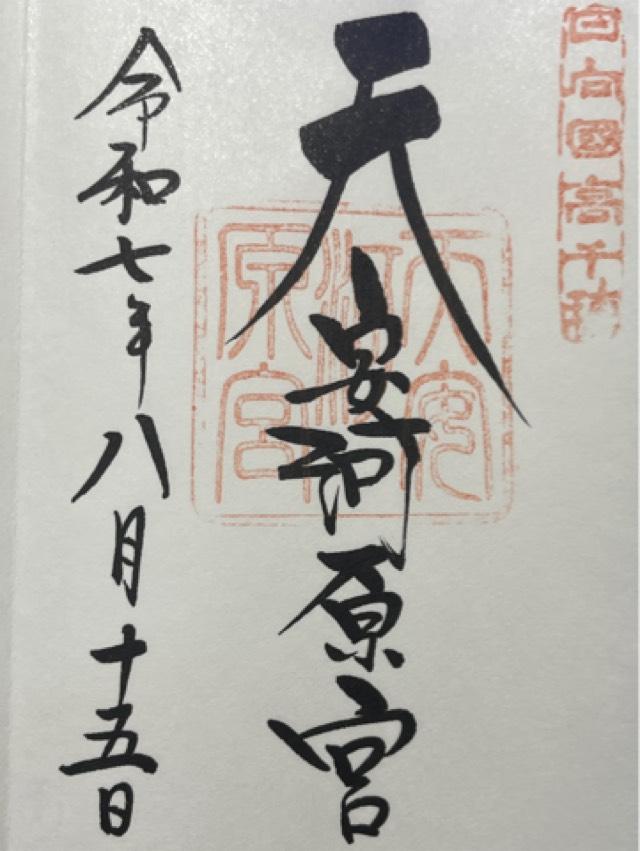 日向國高千穂
天安河原宮
天安河原宮
令和七年八月十五日